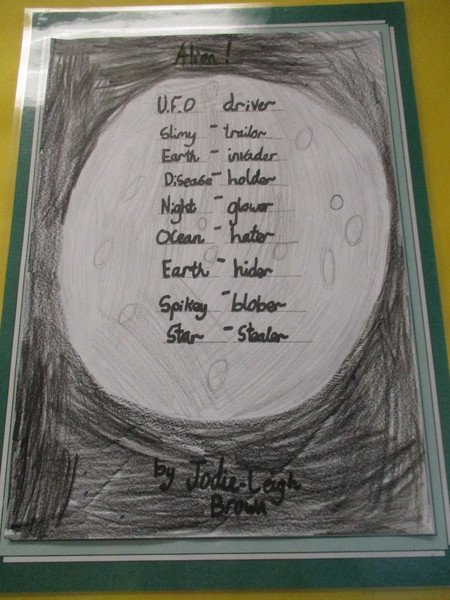 Alien !
U.F.O - driver
Slimy - trailor
Earth - invader
Disease - holder
Night - glower
Ocean - hater
Earth - hider
Spikey - blober
Star - Stealer
by Jodie-Leigh
Brown